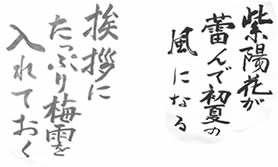 紫陽花が
蕾んで初夏の
風になる
挨拶に
たっぷり梅雨を
入れておく